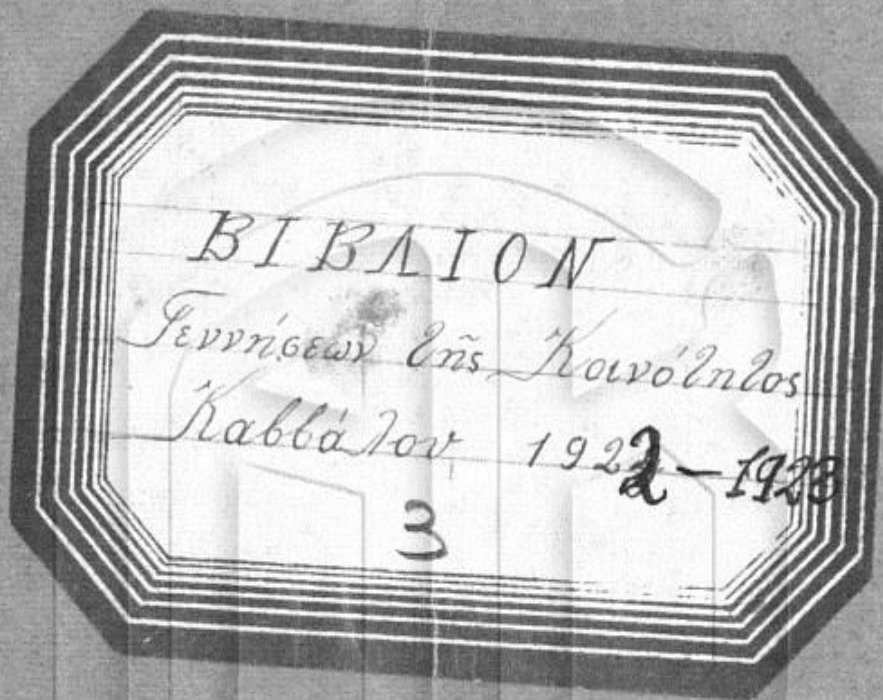 ΒΙΒΛΙΟΝ
Γεννήσεων τῆς Κοινότητος
Καββάλου 1922-1923
3